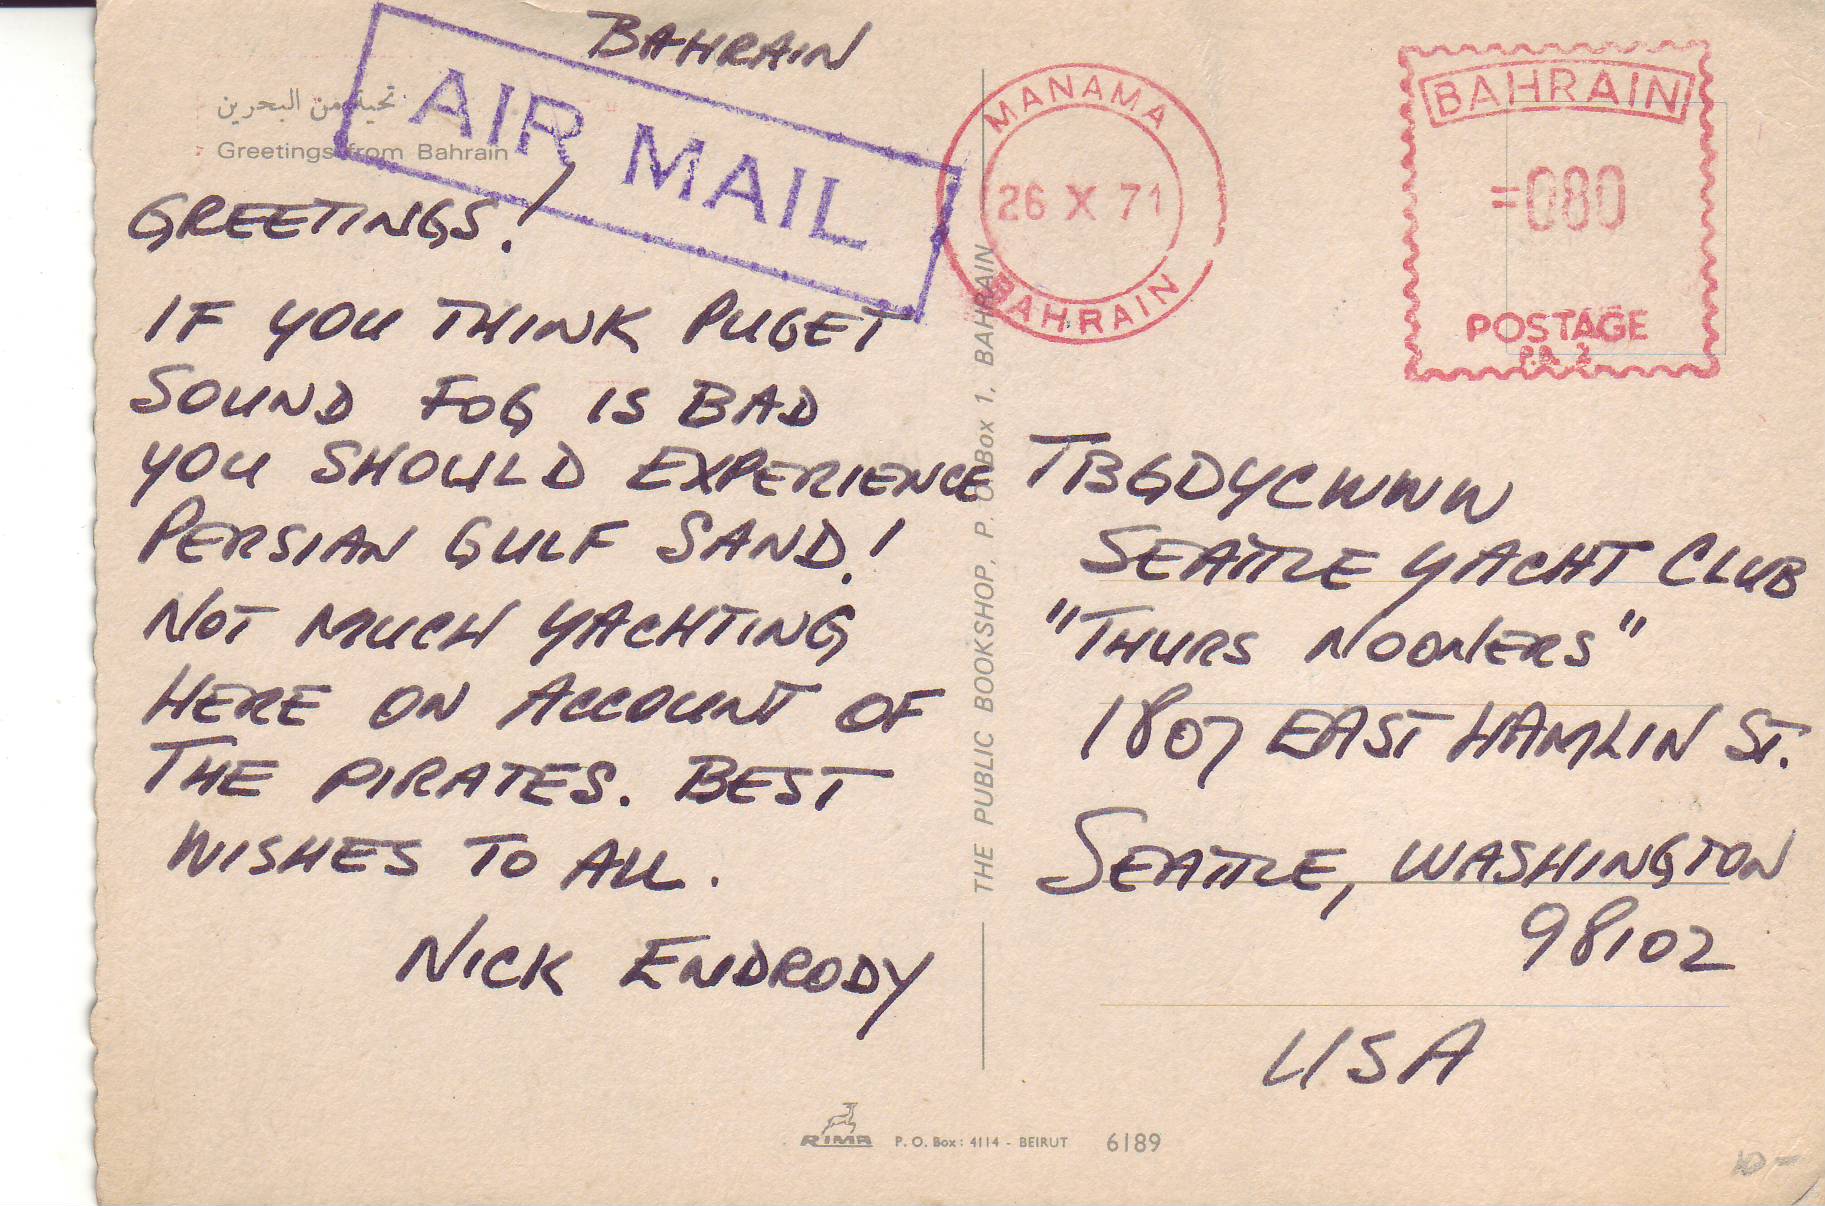 BAHRAIN
AIR MAIL
تحيات من البحرين
Greetings from Bahrain
GREETINGS!
IF YOU THINK PUGET
SOUND FOG IS BAD
YOU SHOULD EXPERIENCE
PERSIAN GULF SAND!
NOT MUCH YACHTING
HERE ON ACCOUNT OF
THE PIRATES. BEST
WISHES TO ALL.
NICK ENDRODY
THE PUBLIC BOOKSHOP, P. O. Box 1, BAHRAIN
MANAMA
26 X 71
BAHRAIN
BAHRAIN
=080
POSTAGE
P.B. 2
TBGDYCWWW
SEATTLE YACHT CLUB
"THURS NOONERS"
1807 EAST HAMLIN ST.
SEATTLE, WASHINGTON
98102
USA
RIMA P. O. Box: 4114 - BEIRUT 6189
10-